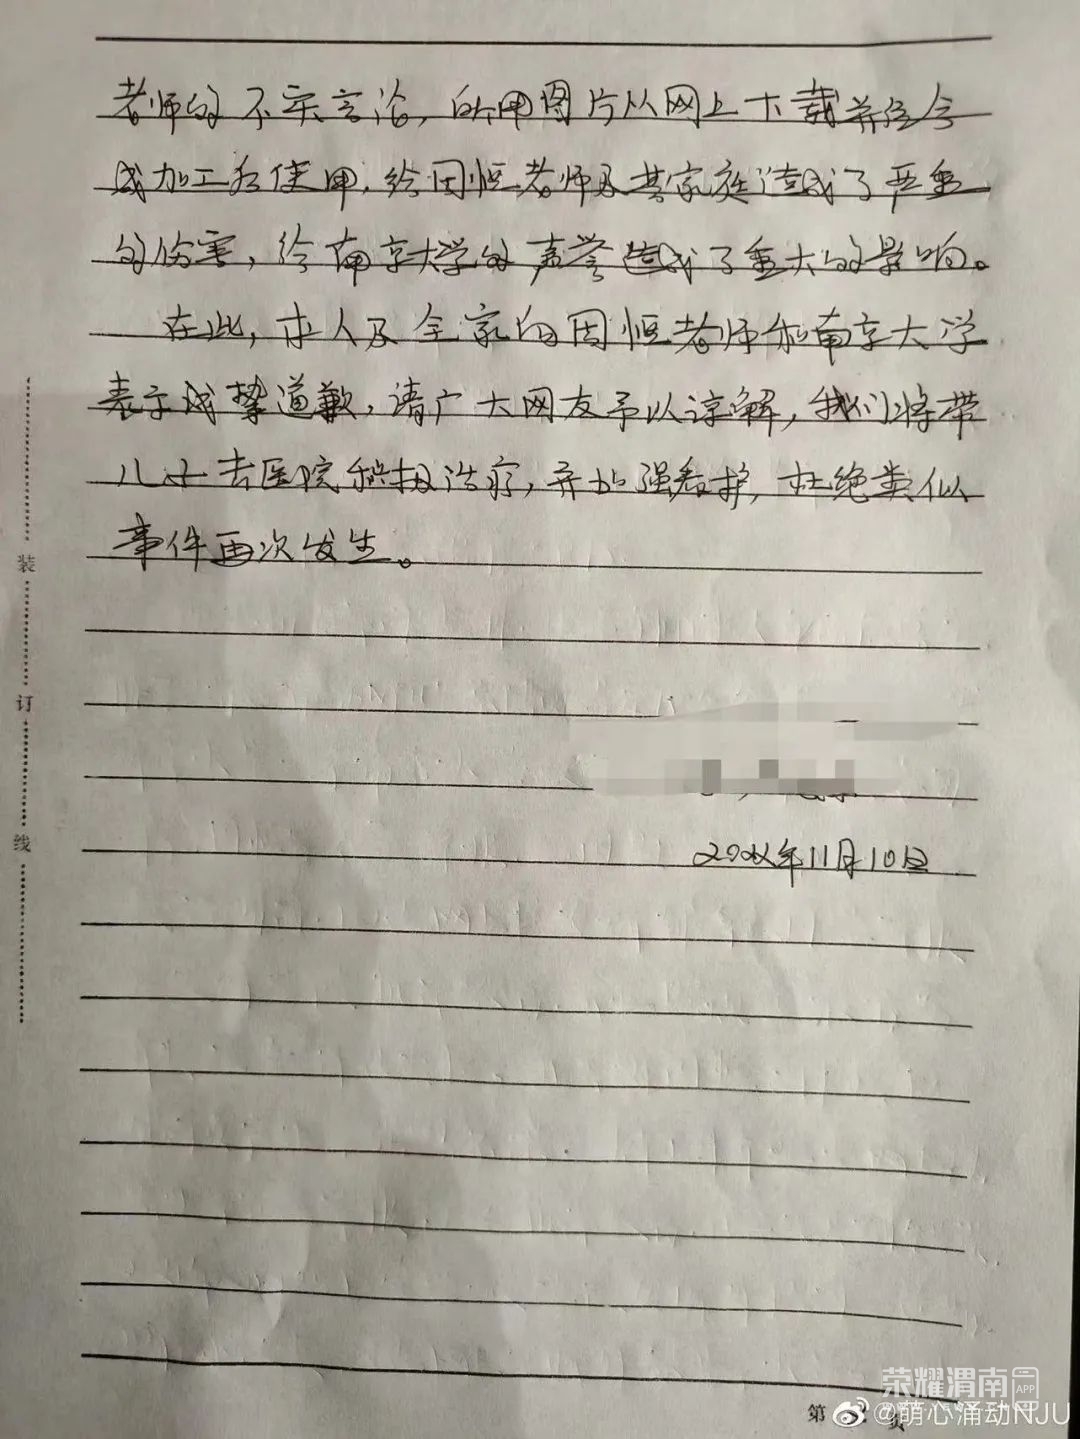 老师的不实言论，所用图片从网上下载并经合
成加工后使用，给周恒老师及其家庭造成了严重
的伤害，给南京大学的声誉造成了重大的影响。
在此，本人及全家向周恒老师和南京大学
表示诚挚道歉，请广大网友予以谅解，我们将带
儿子去医院积极治疗，并加强看护，杜绝类似
事件再次发生。
年11月10日
装
订
线
荣耀渭南
APP
第 页
@萌心涌动NJU